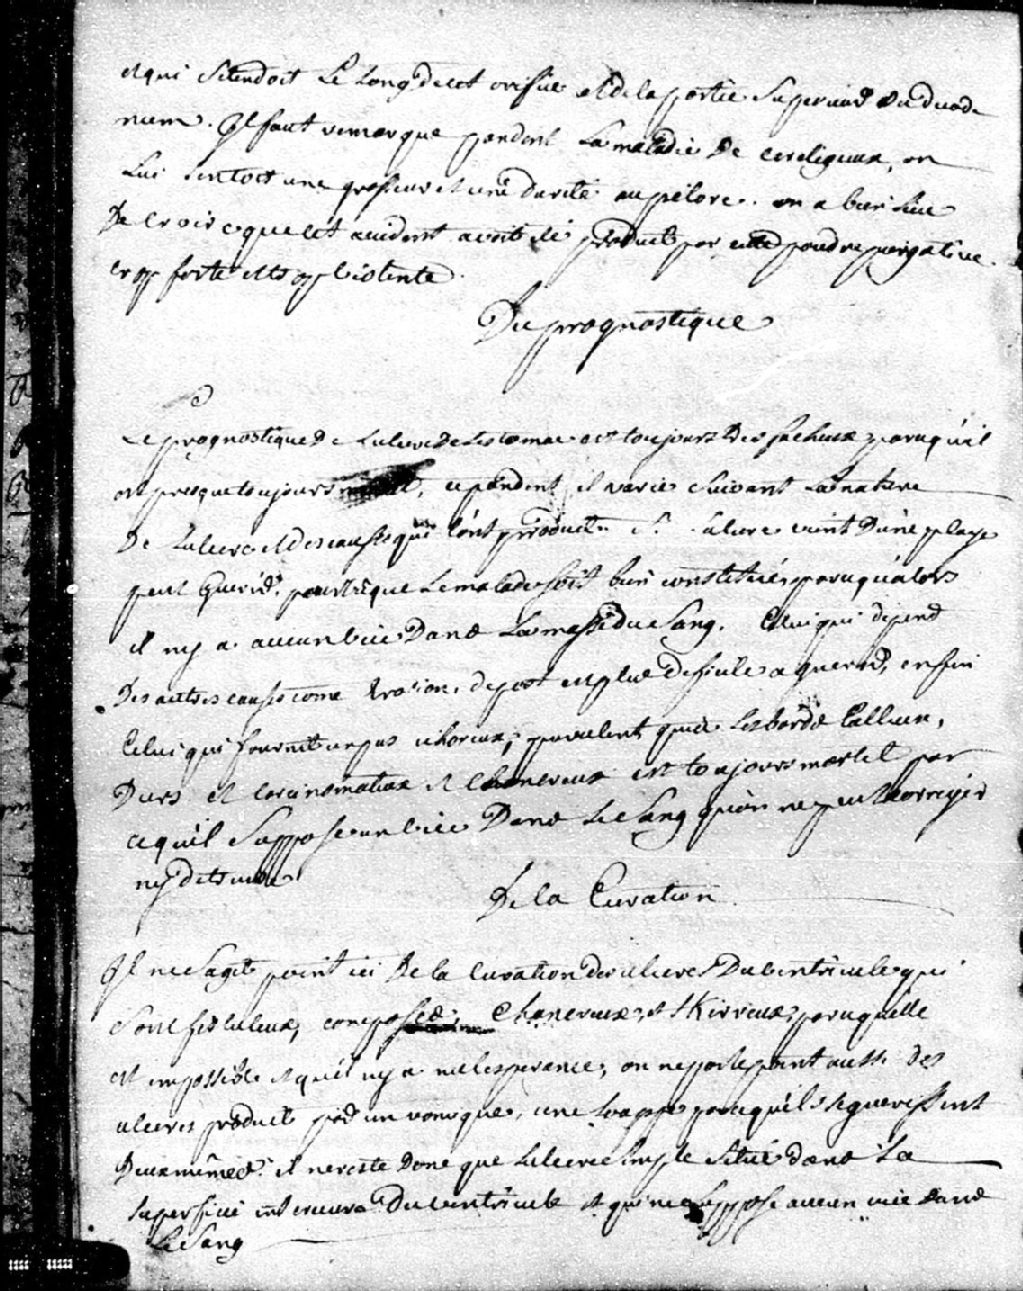 et qui setendoit Le Long de cet orifice et de la partie Superieur du duode
num. Il faut remarque pendent La maladie de ce religieux, on
Lui sentoit une grosseur et une dureté au pilore. on a bien lieu
De croire que cet accident avoit été produit par cette poudre purgative
trop forte et trop violente.
Du prognostique
Le prognostique de Lulcere de Lestomac est toujours des facheux parcqu'il
est presque toujours mortel, cependent il varie suivant La nature
De Lulcere et des causes qui l'ont produit. Si Lulcere vient D'une playe
peut Guerir, pourvu que Le malade soit bien constitué, parcqu'alors
il ny a aucun vice Dans La masse du Sang. Celui qui depend
Des autres causes come Erosion, depost est plus deficile a guerir, enfin
Celui qui fournit un pus ichoreux, purulent que Les bords Calleux,
Durs et carcinomateux et Chancreux est toujours mortel par
cequil Suppose un vice Dans Le Sang qu'on ne peut corriger
ny detruire
De la Curation
Il ne Sagit point ici De la Curation des ulceres Du ventricule qui
Sont fistuleux, composés, Chancreux, et skirreux parcquelle
est impossible et qu'il ny a nulle esperance, on ne parle point aussi des
ulceres produit par un vomique, une parcequ'ils se guerissent
Deux mêmes. il ne reste Donc que Lulcere simple situé dans La
superficie interieure Du ventricule et qui ne suppose aucun vice dans
Le Sang